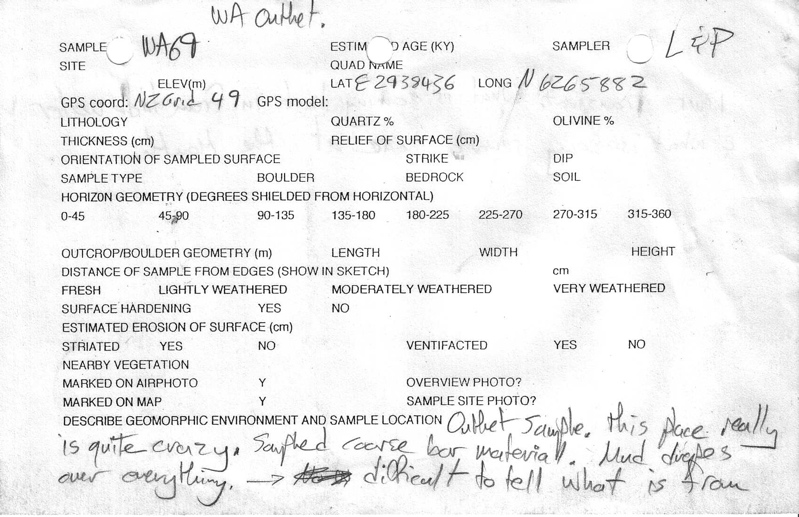 WA Outlet.
SAMPLE WA69 ESTIMATED AGE (KY) SAMPLER L&P
SITE QUAD NAME
ELEV(m) LAT E 2938436 LONG N 6265882
GPS coord: NZGrid 49 GPS model:
LITHOLOGY QUARTZ % OLIVINE %
THICKNESS (cm) RELIEF OF SURFACE (cm)
ORIENTATION OF SAMPLED SURFACE STRIKE DIP
SAMPLE TYPE BOULDER BEDROCK SOIL
HORIZON GEOMETRY (DEGREES SHIELDED FROM HORIZONTAL)
0-45 45-90 90-135 135-180 180-225 225-270 270-315 315-360
OUTCROP/BOULDER GEOMETRY (m) LENGTH WIDTH HEIGHT
DISTANCE OF SAMPLE FROM EDGES (SHOW IN SKETCH) cm
FRESH LIGHTLY WEATHERED MODERATELY WEATHERED VERY WEATHERED
SURFACE HARDENING YES NO
ESTIMATED EROSION OF SURFACE (cm)
STRIATED YES NO VENTIFACTED YES NO
NEARBY VEGETATION
MARKED ON AIRPHOTO Y OVERVIEW PHOTO?
MARKED ON MAP Y SAMPLE SITE PHOTO?
DESCRIBE GEOMORPHIC ENVIRONMENT AND SAMPLE LOCATION Outlet Sample. This place really
is quite crazy. Sampled coarse bar material. Mud drapes
over everything. → difficult to tell what is from